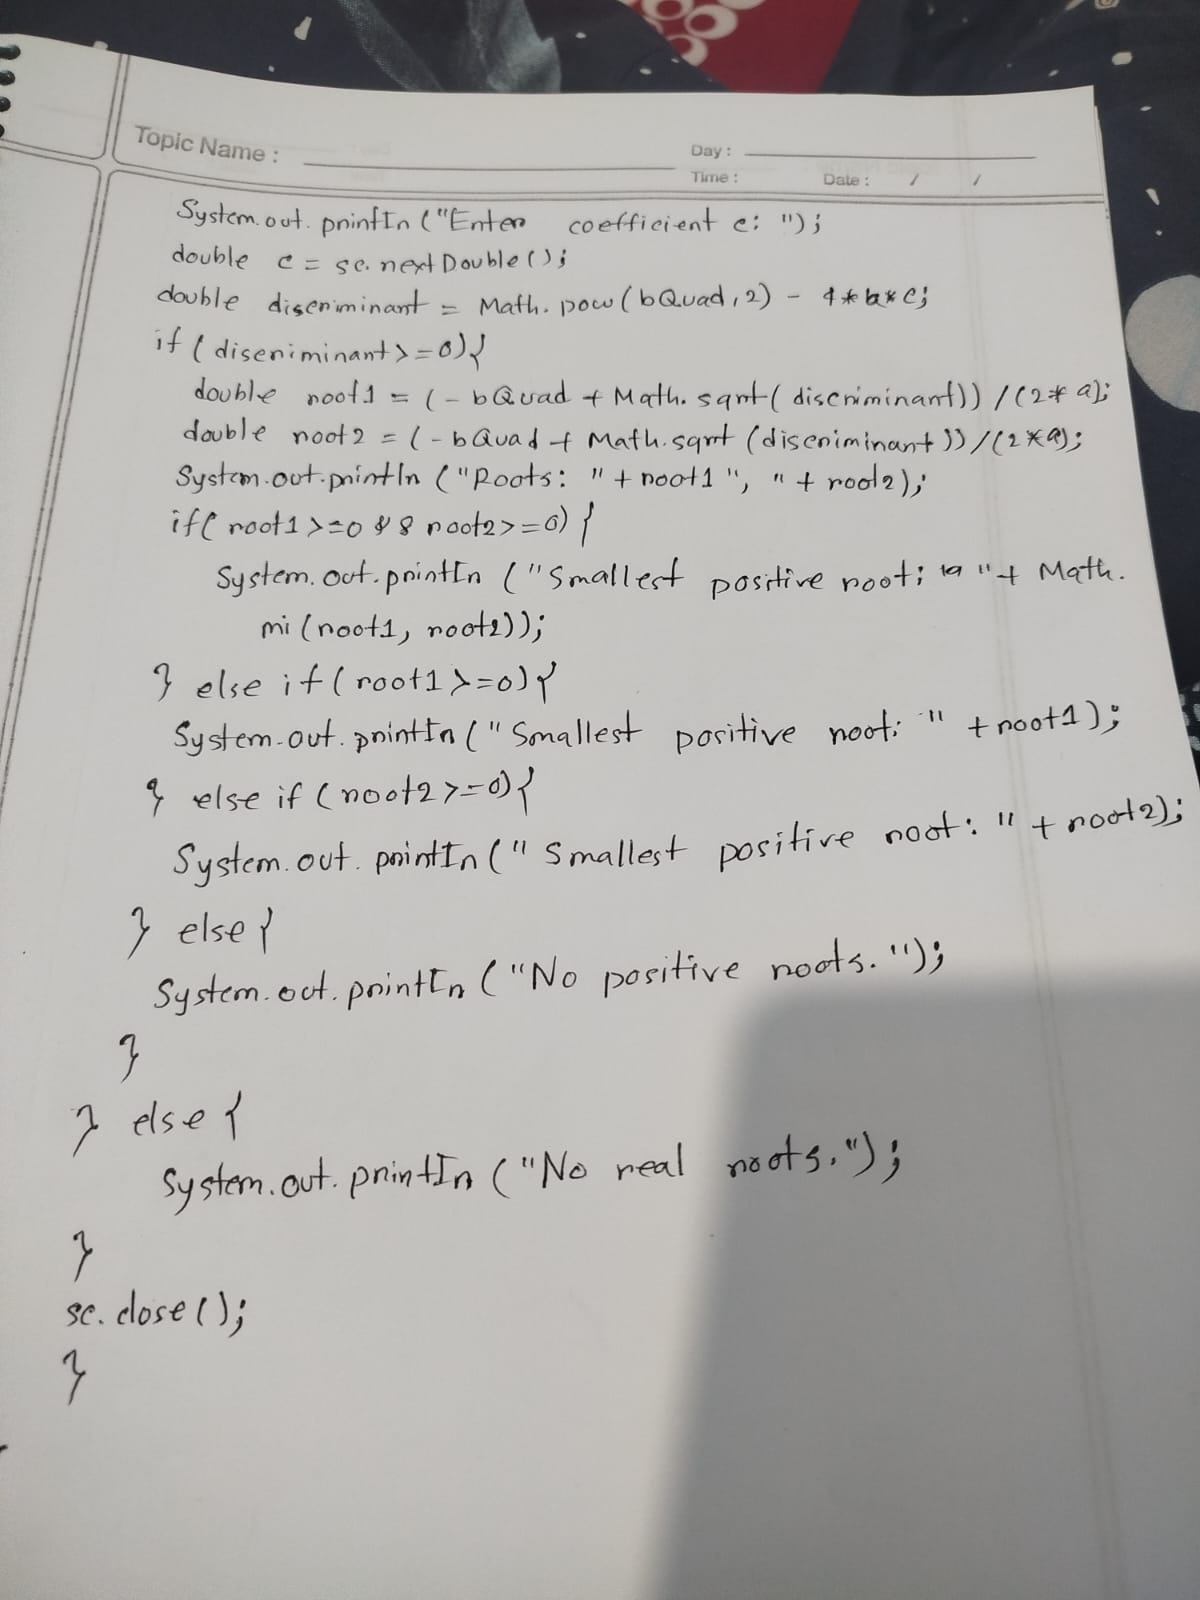 Topic Name :
Day :
Time : Date : / /
System.out.println ("Enter coefficient c: ");
double c = sc.nextDouble();
double discriminant = Math.pow(bQuad,2) - 4*a*c;
if (discriminant>=0){
double root1 = (-bQuad + Math.sqrt(discriminant)) /(2*a);
double root2 = (-bQuad + Math.sqrt (discriminant))/(2*a);
System.out.println ("Roots: " + root1 ", " + root2);
if( root1 >=0 && root2>=0) {
System.out.println ("Smallest positive root: " + Math.
mi (root1, root2));
} else if (root1 >=0){
System.out.println (" Smallest positive root: " + root1);
} else if (root2 >=0){
System.out.println (" Smallest positive root: " + root2);
} else {
System.out.println ("No positive roots.");
}
} else {
System.out.println ("No real roots.");
}
sc.close();
}